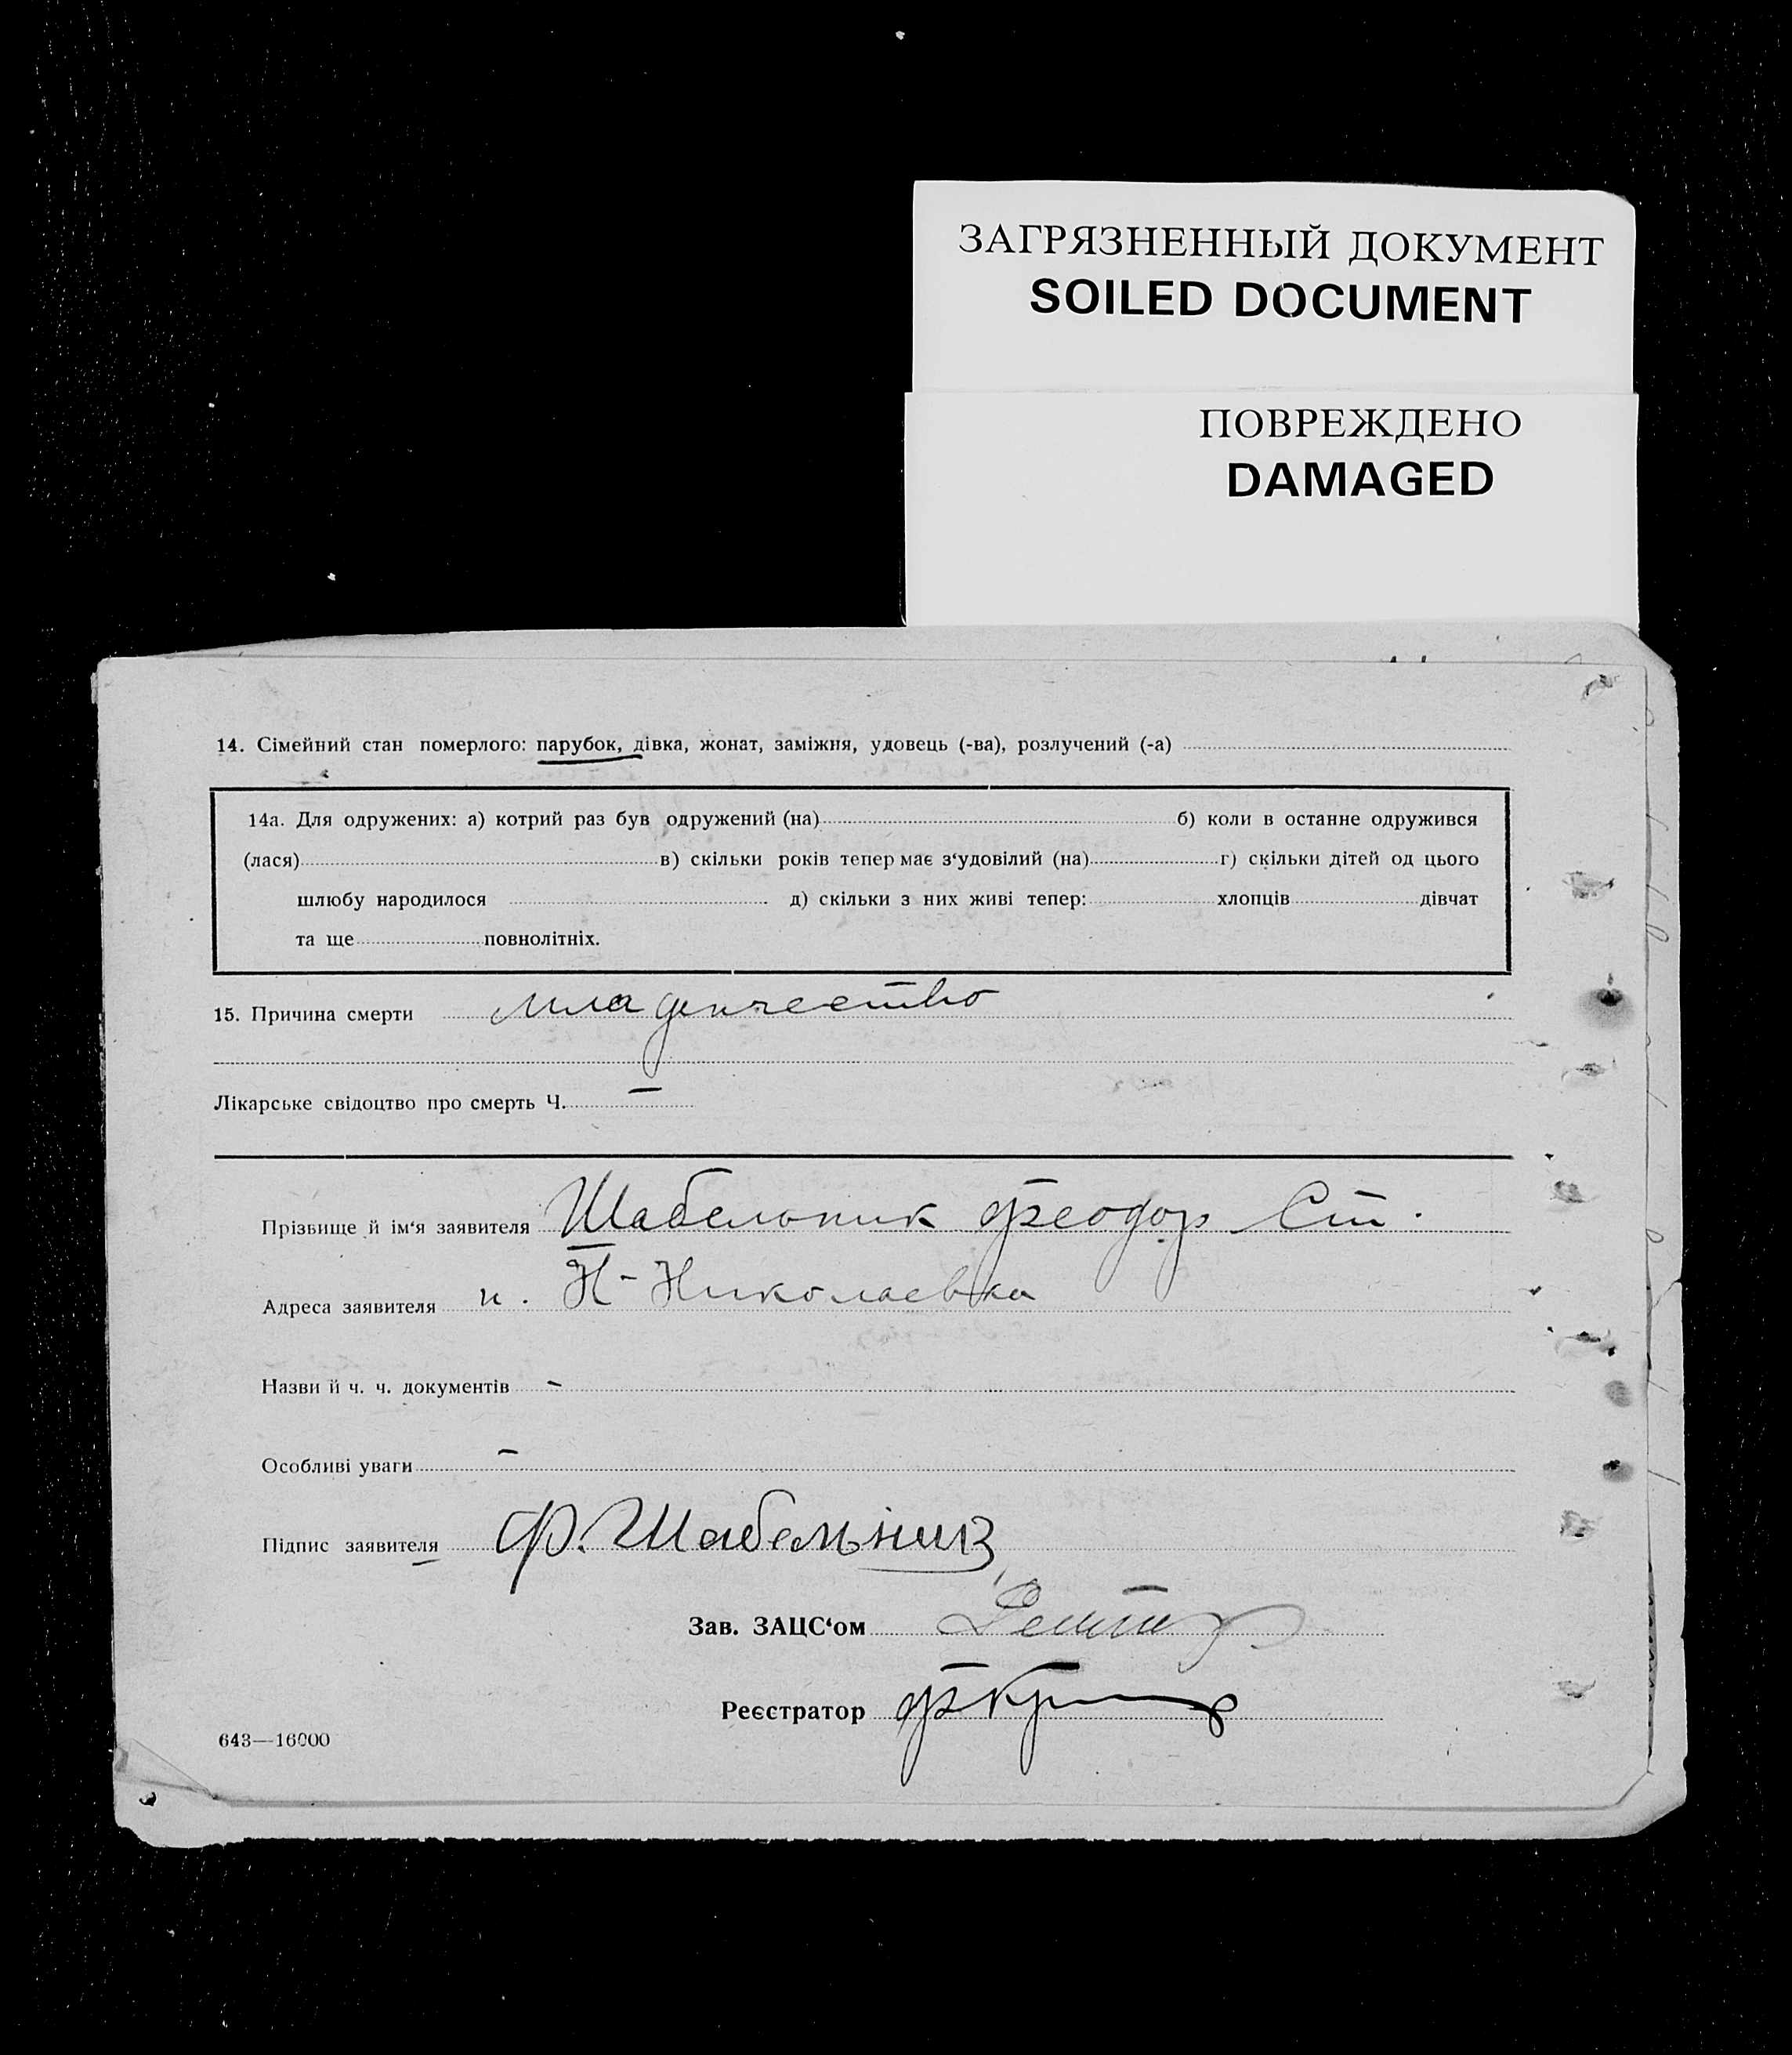 ЗАГРЯЗНЕННЫЙ ДОКУМЕНТ
SOILED DOCUMENT
ПОВРЕЖДЕНО
DAMAGED
14. Сімейний стан померлого: парубок, дівка, жонат, заміжня, удовець (-ва), розлучений (-а)
14а. Для одружених: а) котрий раз був одружений (на) б) коли в останнє одружився
(лася) в) скільки років тепер має з‘удовілий (на) г) скільки дітей од цього
шлюбу народилося д) скільки з них живі тепер: хлопців дівчат
та ще повнолітніх.
15. Причина смерти младенчество
Лікарське свідоцтво про смерть Ч. —
Прізвище й ім‘я заявителя Шабельник Феодор Ст.
Адреса заявителя Николаевка
Назви й ч. ч. документів -
Особливі уваги -
Підпис заявителя Ф. Шабельник
Зав. ЗАЦС‘ом
Реєстратор
643—16000